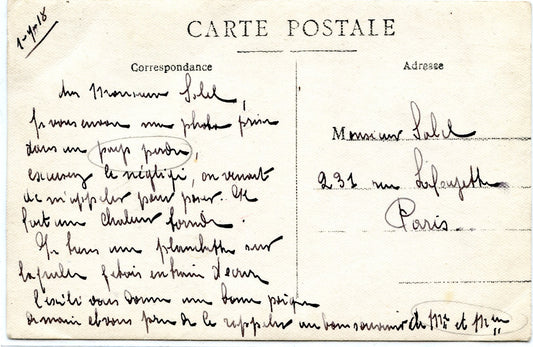 1-4-18
CARTE POSTALE
Correspondance
Adresse
cher Monsieur Solel,
Je vous envoie une photo prise
dans un pays perdu,
excusez le négligé, on venait
de m'appeler pour poser. Il
fait une chaleur lourde.
Je tiens une planchette sur
laquelle j'étais en train d'écrire
vous donne une bonne poignée
de main et vous prie de le rappeler au bon souvenir de Mr et Mme
Monsieur Solel
231 rue Lafayette
Paris